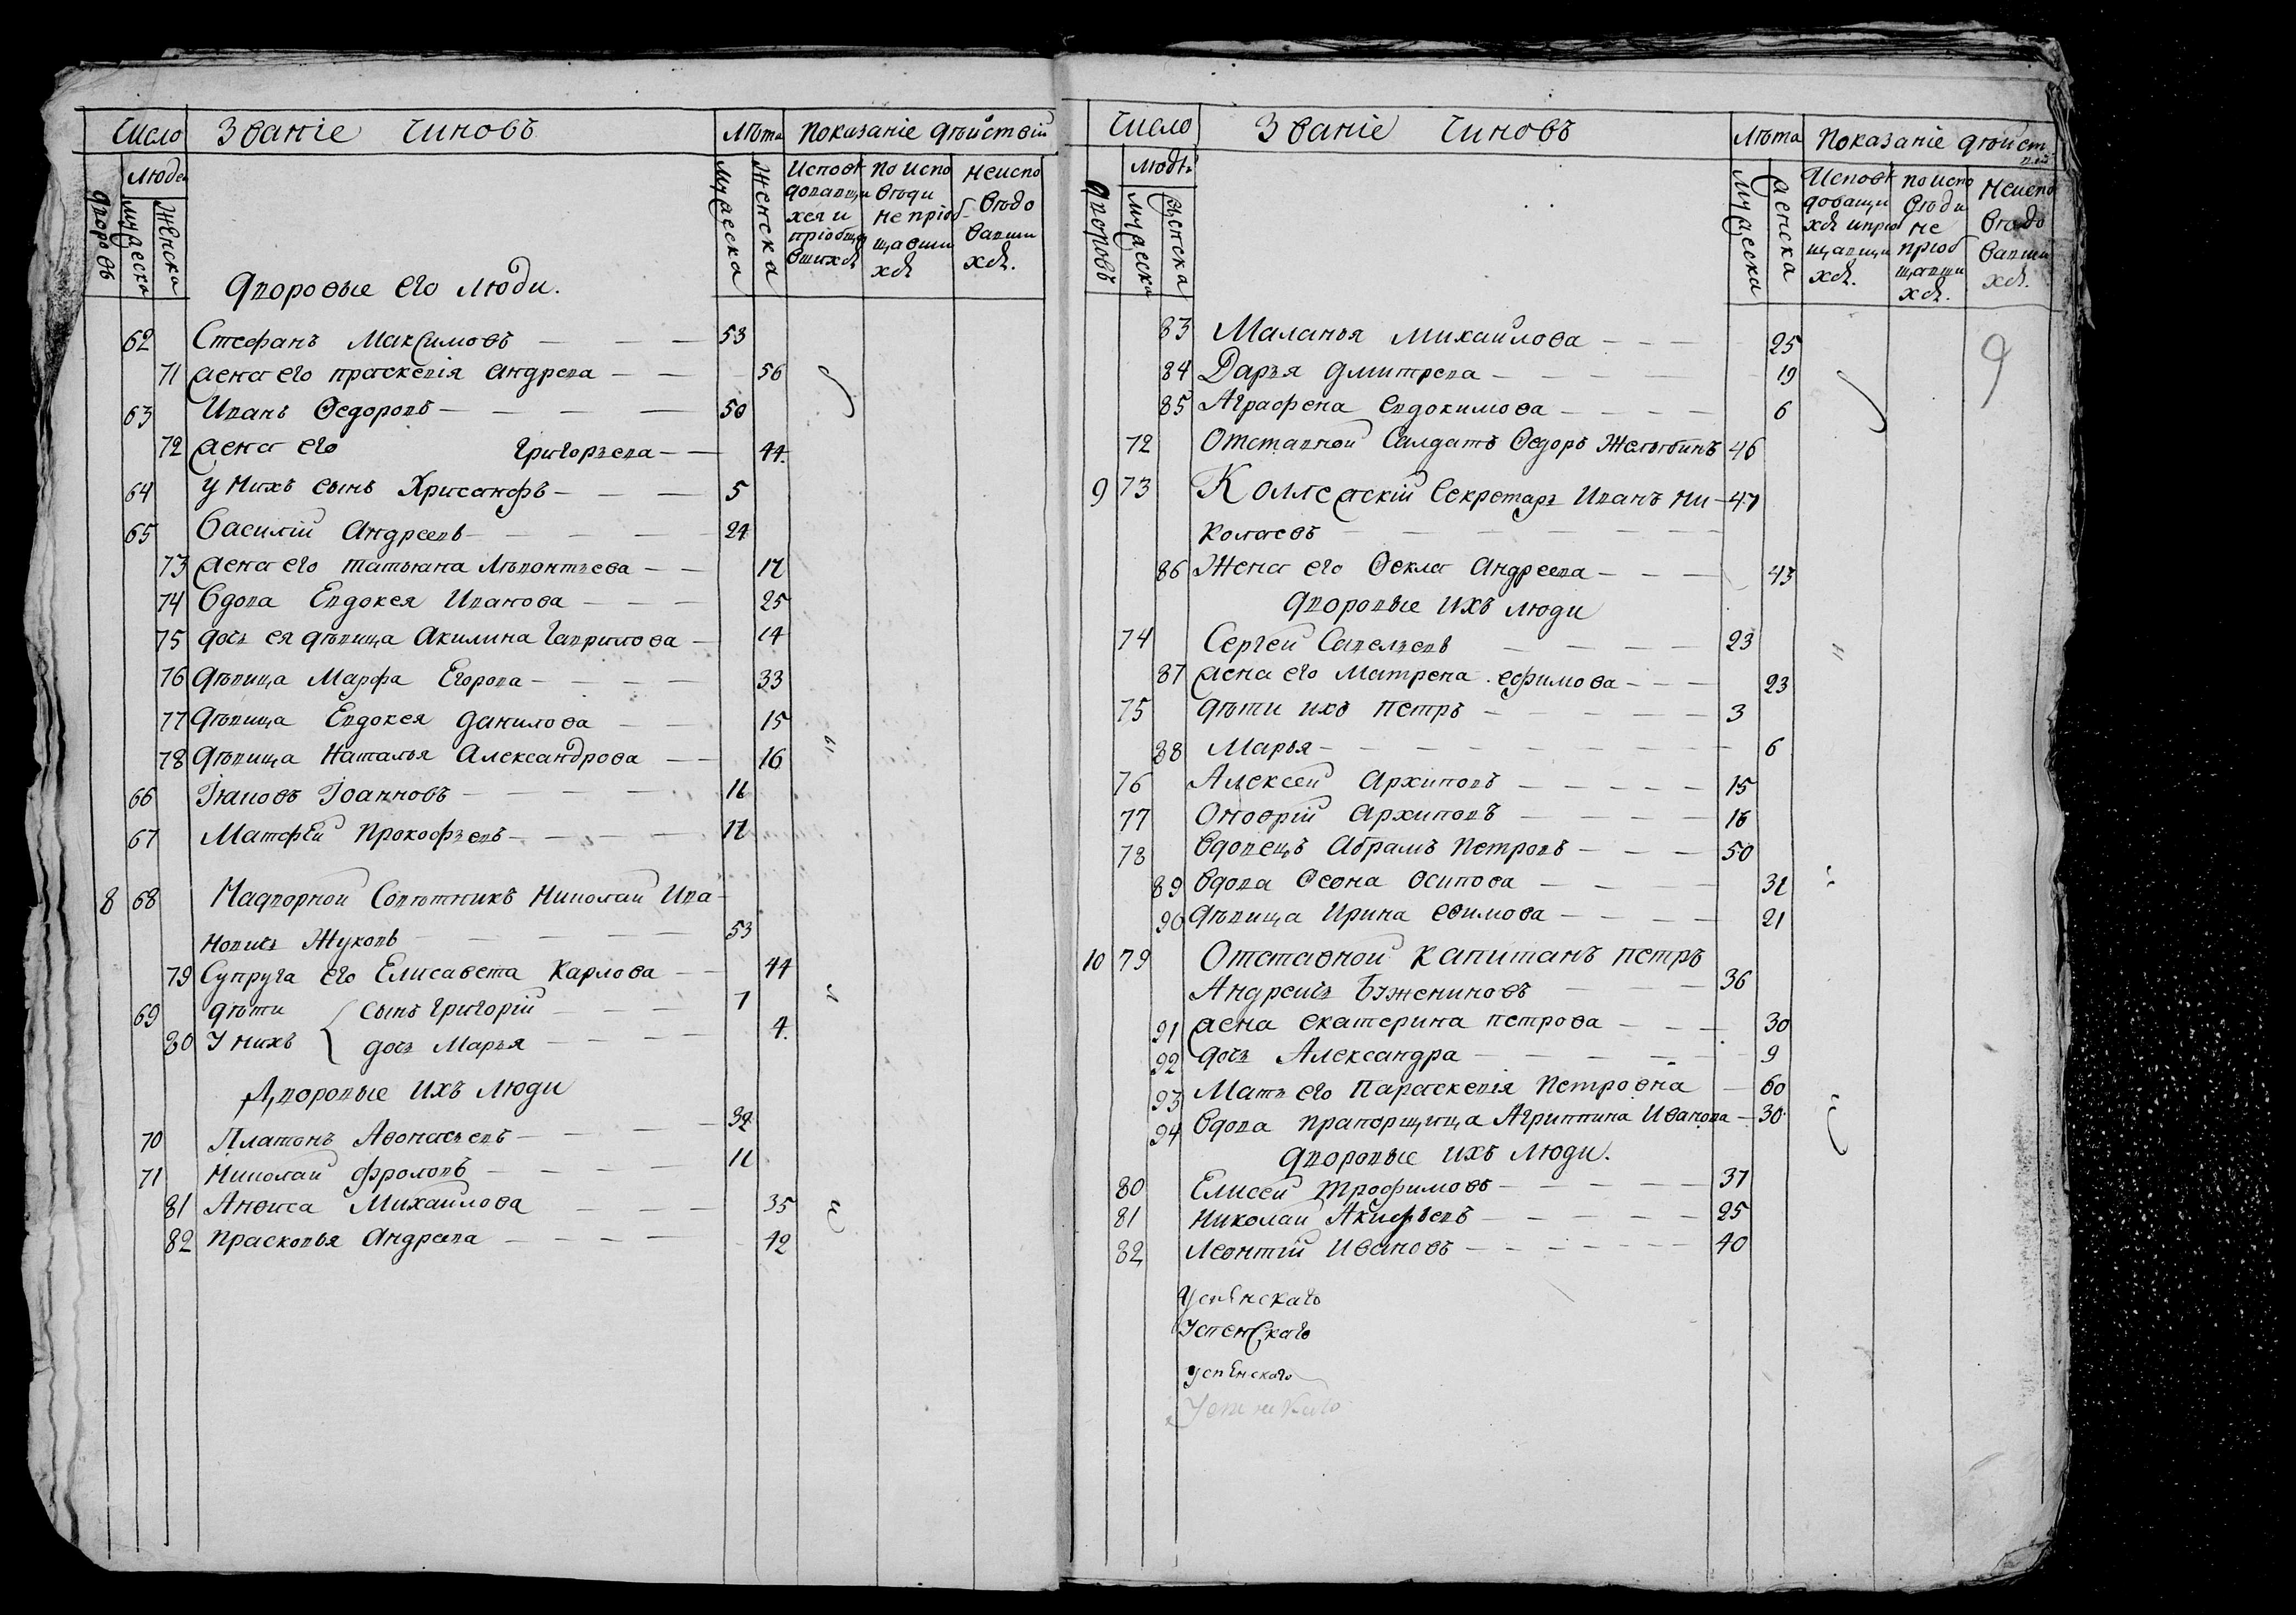 Число Званіе Чиновъ Лѣта Показаніе дѣйствій
Людей
Дворовъ Мужеска Женска Мужеска Женска
Исповѣ По испо Неиспо
довавши вѣди вѣдо
хся и не пріоб вавши
пріобща щавши хся.
вшихся хся
Дворовые Его Люди.
62 Стефанъ Максимовъ 53
71 жена его праскевія Андрева 56
63 Иванъ Ѳедоровъ 50
72 жена Его Григорьева 44
64 у Нихъ сынъ Хрисанфъ 5
65 Василій Андреевъ 24
73 жена его татьяна Лѣвонтьева
74 Вдова Евдокея Иванова 25
75 дочь ея дѣвица Акилина Гаврилова 14
76 Дѣвица Марфа Егорова 33
77 Дѣвица Евдокея данилова 15
78 Дѣвица Наталья Александрова 16
66 Іоанновъ
67 Матфѣй Прокофьевъ
8 68 Надворной Совѣтникъ Николай Ива
новичь Жуковъ 53
79 Супруга его Елисавета Карлова 44
69 дѣти сынъ Григорій 7
80 У нихъ дочь Марья 4
Дворовые Ихъ Люди
70 Платонъ Аѳонасьевъ 32
71 Николай Фроловъ
81 Анѳиса Михайлова 35
82 Прасковья Андреева 42
Число Званіе Чиновъ Лѣта Показаніе дѣйст
вій
Людѣй
Дворовъ Мужеска Женска Мужеска Женска
Исповѣ По испо Неиспо
довавши вѣди вѣдо
хся и пріоб не вавши
щавши пріоб хся.
хся. щавши
хся.
9
83 Маланья Михайлова 25
84 Дарья дмитрева 19
85 Аграфена Евдокимова 6
72 Отставной Салдатъ Ѳедоръ 46
9 73 Коллежскій Секретарь Иванъ Ни 47
колаевъ
86 Жена его Ѳекла Андреева 43
Дворовые Ихъ Люди
74 Сергей Савельевъ 23
87 жена его Матрена ефимова 23
75 Дѣти ихъ Петръ 3
88 Марья 6
76 Алексей Архиповъ 15
77 Оноѳрій Архиповъ 18
78 Вдовецъ Абрамъ Петровъ 50
89 Вдова Ѳеона Осипова
90 дѣвица Ирина Еѳимова 21
10 79 Отставной Капитанъ Петръ
Андреичь Бужениновъ 36
91 жена екатерина петрова 30
92 дочь Александра 9
93 Мать его Параскевія Петровна 60
94 Вдова прапорщица Агриппина Иванова 30
Дворовые ихъ Люди.
80 Елисей Трофимовъ 37
81 Николай Акифьевъ 25
82 Леонтій Ивановъ 40
Успѣнскаго
Успенскаго
Успѣнскаго